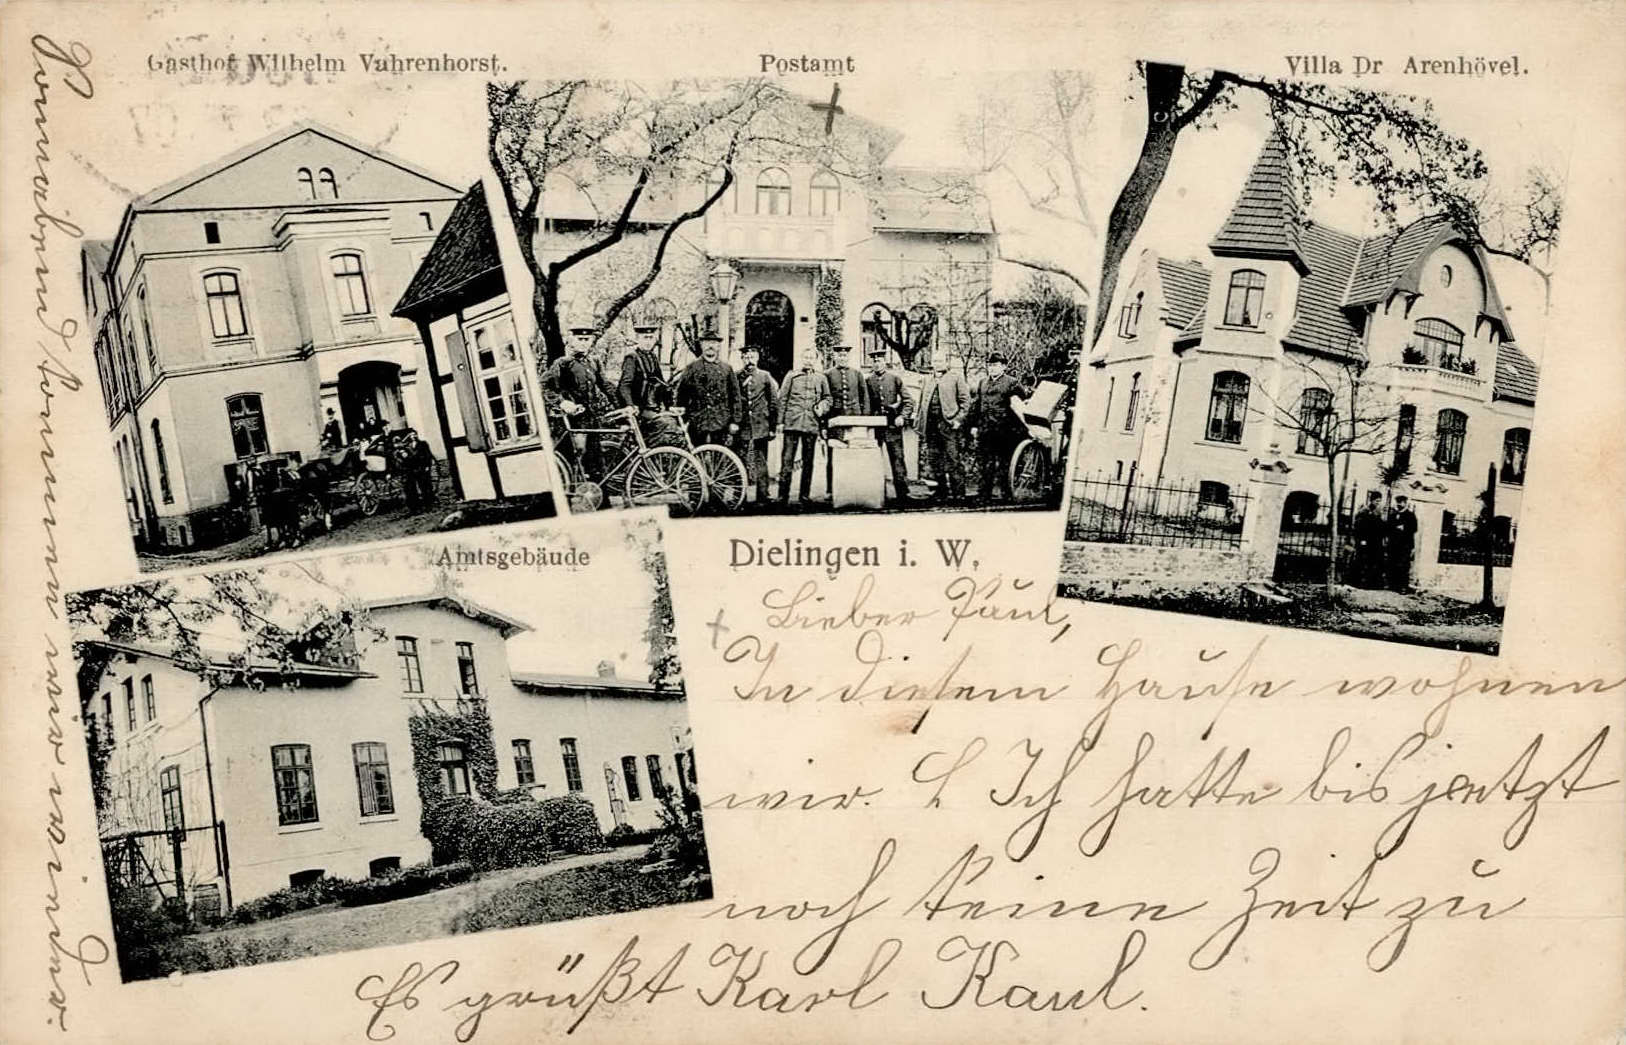 Gasthof Wilhelm Vahrenhorst.
Postamt
Villa Dr Arenhövel.
Amtsgebäude
Dielingen i. W.
Lieber Paul,
+ In diesem Hause wohnen
wir. Ich hatte bis jetzt
noch keine Zeit zu
Es grüßt Karl Kaul.
Sonnabend kommen wir wieder.